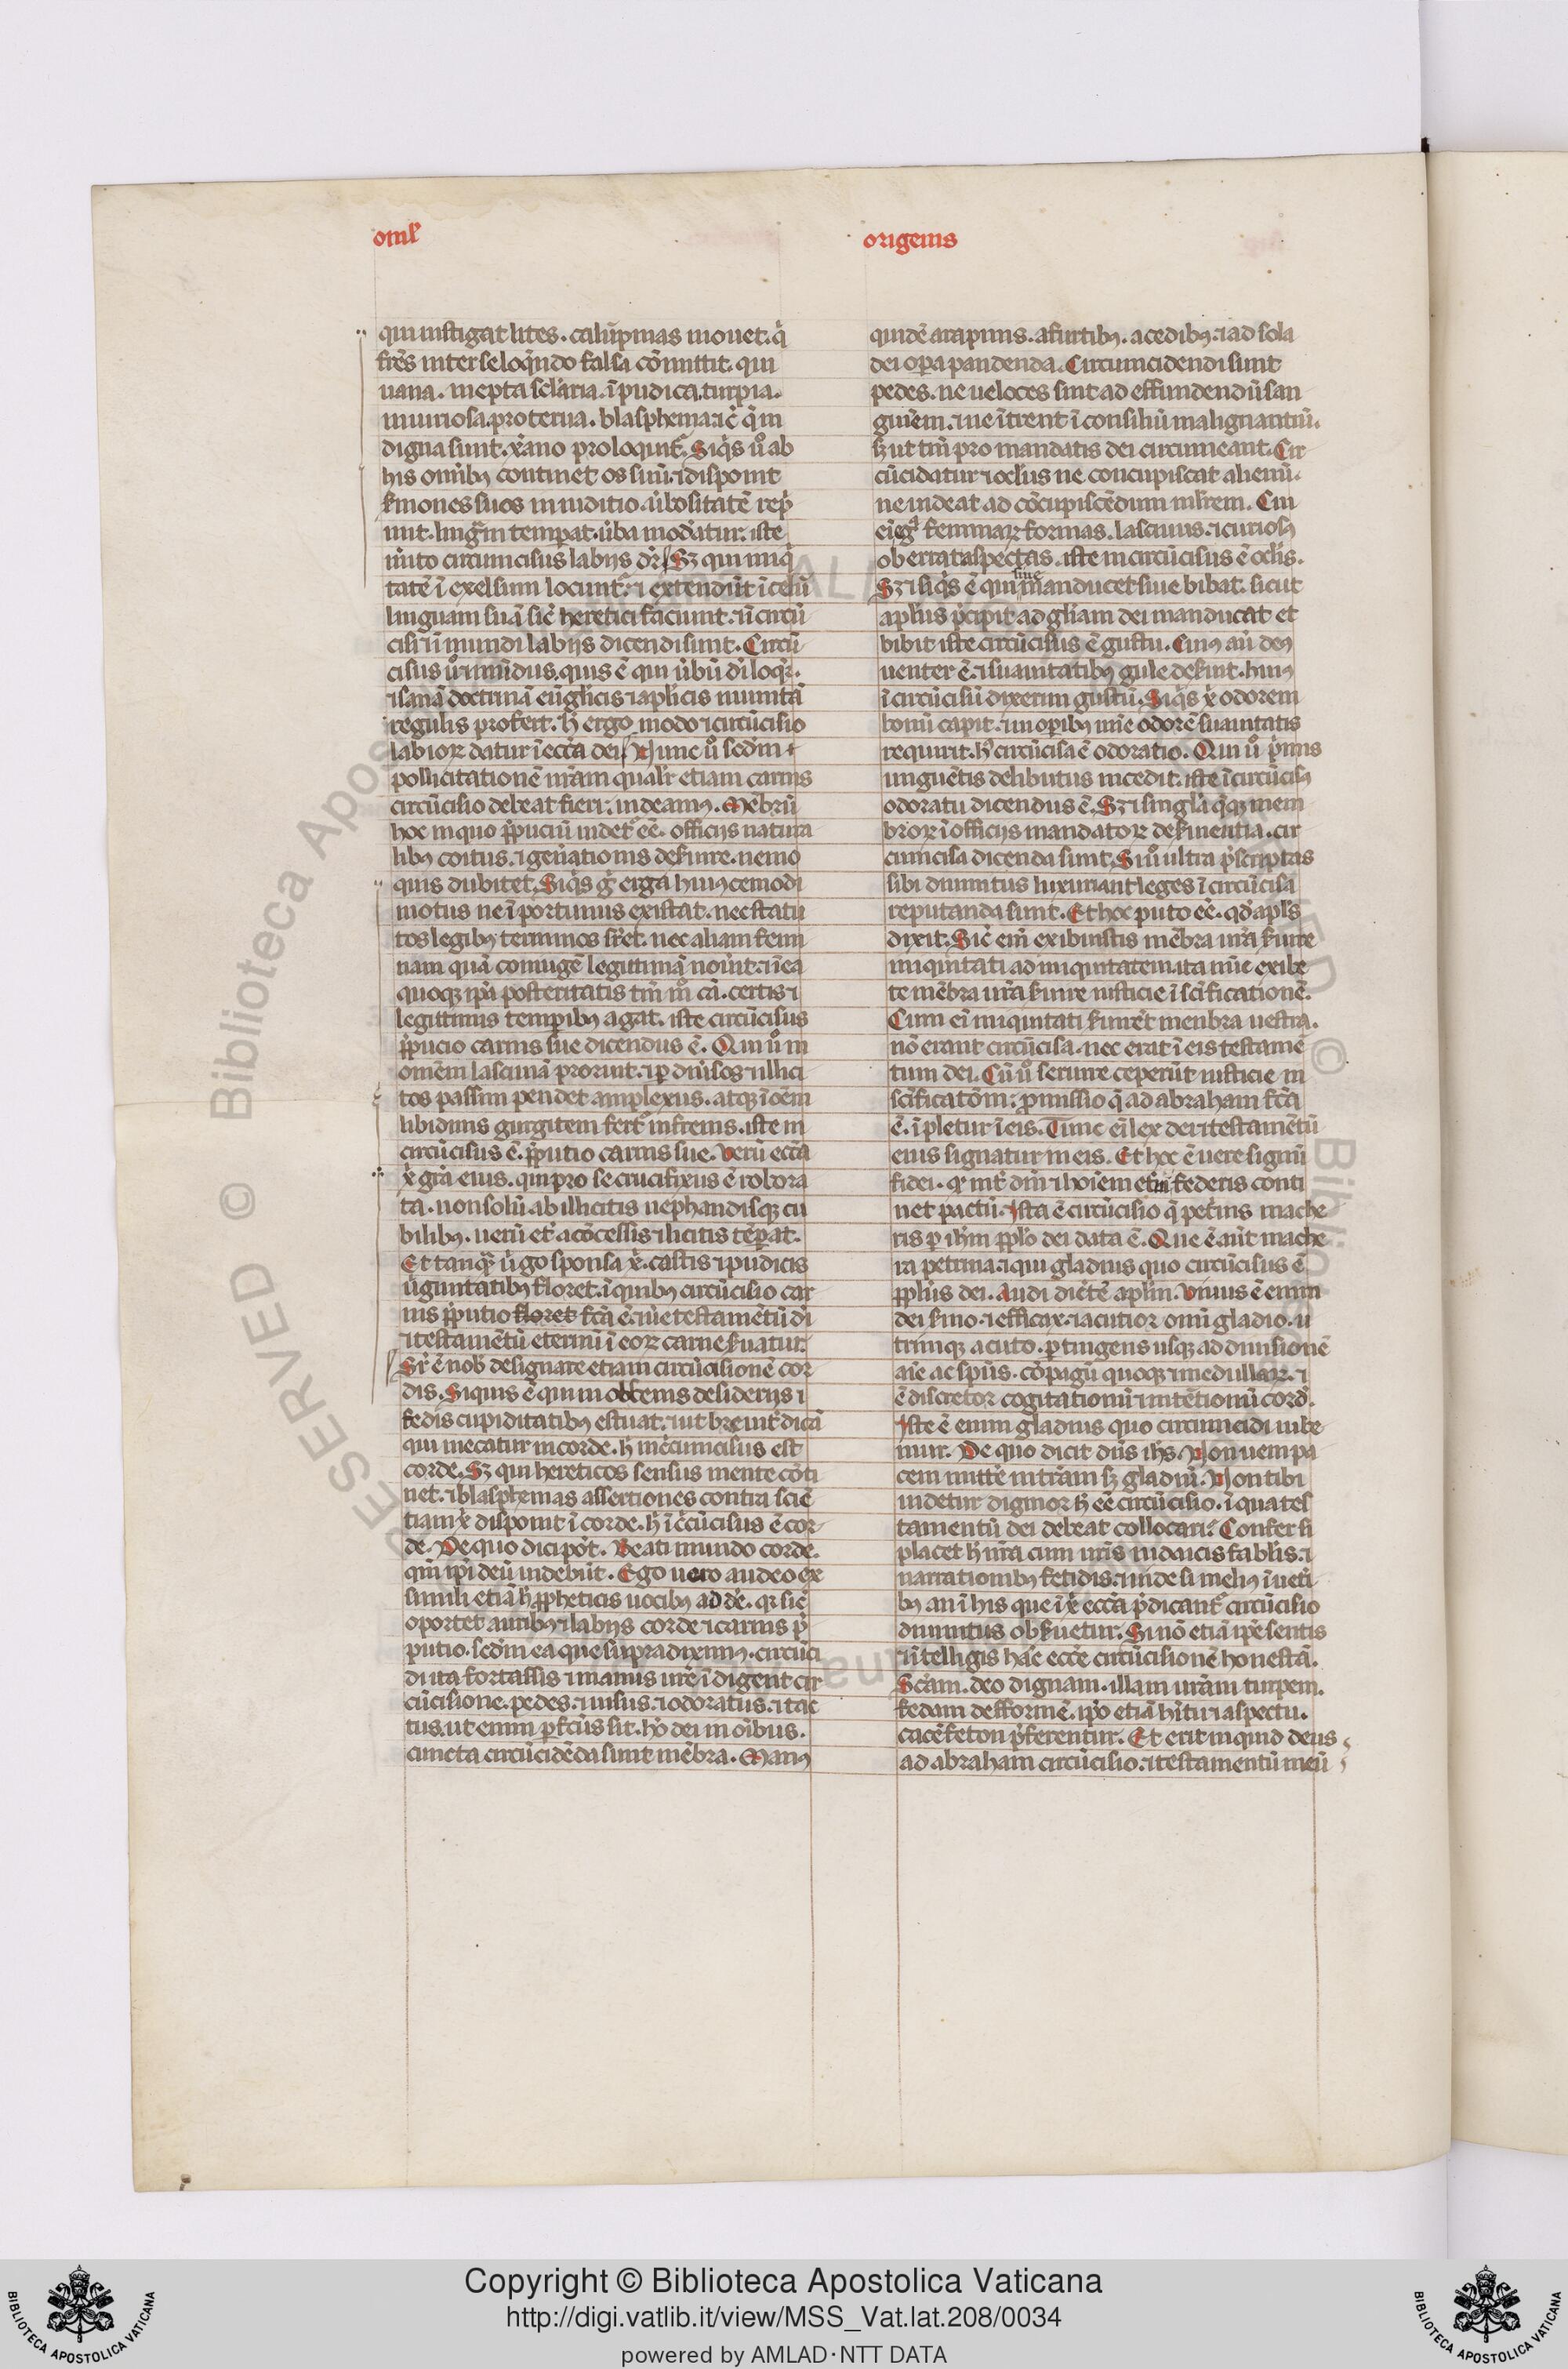 omel'
origenis
qui instigat lites. calūpnias mouet. q̇
frēs inter se loq̄ndo falsa cōmittit. qui
uana. inepta sclāria. īpudica. turpia.
iniuriosa. proterua. blasphema. ⁊ c̄ q̄ in
digna sunt. xāno proloquit̄. Siq̇s ů ab
his om̄ibꝫ continet os suū. ⁊ disponit
sermones suos in iuditio. ūbositatē rep̄
mit. ling̈m temperat. ūba mod̄atur. iste
m̄ito circumcisus labijs dr̄. Sꝫ qui iniq̇
tatē ī exelsum locunt̄. ⁊ extendūt ī celū
linguam suā sic̄ heretici faciunt. ⁊ īcircū
cisi ⁊ īmundi labijs dicendi sunt. Circū
cisus ů ⁊ mūdus. quis ē qui ūbū dī loq̇r.
⁊ sanā doctrinā euglīcis ⁊ aplīcis munitā
regulis profert. h̄ ergo modo ⁊ circūcisio
labioꝝ datur ī ecc̄a dei. Nunc ů scd̄m
pollicitationē nr̄am qualr̄ etiam carnis
circūcisio debeat fieri. uideamꝰ. Mēbrū
hoc in quo p̄puciū uidet̄ eē. officijs natura
libꝫ coitus. ⁊ gen̄ationis deseruire. nemo
quis dubitet. Siq̇s ḡ erga huiꝰcemodi
motus ne īportunus existat. nec statu
tos legibꝫ terminos sr̄et. nec aliam femi
nam quā coniugē legittimā nou̇it. ⁊ ī ea
quoqꝫ ip̄a posteritatis tm̄ m̊ cā. certis ⁊
legittimis temp̄ibꝫ agat. iste circūcisus
p̄pucio carnis sue dicendus ē. Qui ů in
om̄em lasciuiā proruit. ⁊ p̄ diūsos ⁊ illici
tos passim pendet amplexus. atqꝫ ī om̄em
libidinis gurgitem fert̄ infrenis. iste in
circūcisus ē. p̄putio carnis sue. Verū ecc̄a
xp̄i gr̄a eius. qui pro se crucifixus ē robora
ta. non solū ab illicitis nephandisqꝫ cu
bilibꝫ. uerū et̄ a cōcessis ⁊ licitis tēp̄at.
Et tanq̄ ūgo sponsa xp̄i. castis ⁊ pudicis
ūginitatibꝫ floret. ī quibꝫ circūcisio car
nis p̄putio floret fc̄a ē. uēre testamētū dī
⁊ testamētū eternū ī eoꝝ carne seruatur.
Sꝫ ē nob̄ designare etiam circūcisionē cor
dis. Si quis ē qui in obscenis desiderijs ⁊
fedis cupiditatibꝫ estuat. ⁊ ut breuit̄ dicā
qui mecatur in corde. h̄ incircumcisus est
corde. Sꝫ qui hereticos sensus mente cōti
net. ⁊ blasphemas assertiones contra sciē
tiam xp̄i disponit ī corde. h̄ īcircūcisus ē cor
de. De quo dici pōt. Beati mundo corde.
qm̄ ip̄i deū uidebūt. Ego uero audeo ex
simili etiā h̄ pp̄heticis uocibꝫ adde. q̄ sic̄
oportet auribꝫ ⁊ labijs corde ⁊ carnis p̄
putio. scd̄m ea que supra diximꝰ. circūci
di ita fortassis ⁊ manus nr̄e īdigent cir
cūcisione. pedes. ⁊ uisus. ⁊ odoratus. ⁊ tac
tus. ut enim p̄fc̄us sit. hō dei in oībus.
cuncta circūcidēda sunt mēbra. Manꝰ
quidē a rapinis. a furtibꝫ. a cedibꝫ. ⁊ ad sola
dei opera pandenda. Circumcidendi sunt
pedes. ne ueloces sint ad effundendū san
guinem. ⁊ ne ītrent ī consiliū malignantiū.
sꝫ ut tm̄ pro mandatis dei circumeant. Cir
cūcidatur ⁊ oclūs ne concupiscat alienū.
ne uideat ad cōcupiscēdum mlr̄em. Cui
eni ġ feminaꝝ formas. lasciuus. ⁊ curiosꝰ
oberrat aspectas. iste incircūcisus ē oclīs.
Sꝫ ⁊ siq̇s ē qui siue manducet siue bibat. sicut
aplūs p̄cipit ad glīam dei manducat et
bibit iste circūcisus ē gustu. Cuiꝰ aū deꝰ
uenter ē. ⁊ suauitatibꝫ gule deseruit. huiꝰ
īcircūcisū dixerim gustū. Siq̇s xp̄i odorem
bonū capit. ⁊ in op̄ibꝫ mīe odorē suauitatis
requirit. h̄ circūcisa ē odoratio. Qui ů p̄mis
unguētis delibutus incedit. iste īcircūcisꝰ
odoratu dicendus ē. Sꝫ ⁊ singlā q̄qꝫ mem
broꝝ ī officijs mandatoꝝ deseruientia. cir
cumcisa dicenda sunt. Si ů ultra p̄scriptas
sibi diuinitus luxuriant leges īcircūcisa
reputanda sunt. Et hoc puto eē. qd̄ apls̄
dixit. Sic̄ eni exibuistis mēbra ur̄a seruire
iniquitati ad iniquitatem. ita nūc exibe
te mēbra ur̄a seruire iusticie ī sc̄ificationē.
Cum eī iniquitati seruiet menbra uestra.
nō erant circūcisa. nec erat ī eis testamē
tum dei. Cū ů seruire ceperūt iusticie in
sc̄ificatōm: promissio q̄ ad abraham fc̄a
ē. īpletur ī eis. Tunc eī lex dei ⁊ testamētū
eius signatur in eis. Et hoc ē uere signū
fidei. q̄ int̄ dm̄ ⁊ hoīem et̄ni federis conti
net pactū. Ista ē circūcisio q̄ petrinis mache
ris p̄ ihm̄ pp̄lo dei data ē. Que ē aūt mache
ra petrina. ⁊ qui gladius quo circūcisus ē
pp̄lus dei. Audi dicētē aplm̄. Viuus ē enim
dei sermo. ⁊ efficax. ⁊ acutior omī gladio. u
trinqꝫ acuto. pertingens usqꝫ ad diuisionē
aīe ac spūs. cōpagū quoqꝫ ⁊ medullaꝝ. ⁊
ē discretor cogitationū ⁊ intētionū cord̄.
Iste ē enim gladius quo circumcidi iube
mur. De quo dicit dn̄s ihs̄. Non ueni pa
cem mittere in terram sꝫ gladiū. Non tibi
uidetur dignior h̄ eē circūcisio. ī qua tes
tamentū dei debeat collocari. Confer si
placet h̄ nr̄a cum ur̄is iudaicis fablīs. ⁊
narrationibꝫ fetidis. ⁊ uide si meliꝰ ī uer̄i
bꝫ an ī his que ī xp̄i ecc̄a p̄dicant̄ circūcisio
diuinitus obseruetur. Si nō etiā ip̄e sentis
⁊ ītelligis hāc ecc̄e circūcisionē honestā.
Scām. deo dignam. illam ur̄am turpem.
fedam defformē. ip̄o etiā hītu ⁊ aspectu.
cacēfeton p̄ferentur. Et erit inquid deus
ad abraham circūcisio. ⁊ testamentū meū
© Biblioteca Apostolica Vaticana
Copyright © Biblioteca Apostolica Vaticana
http://digi.vatlib.it/view/MSS_Vat.lat.208/0034
powered by AMLAD·NTT DATA
BIBLIOTECA APOSTOLICA VATICANA
BIBLIOTECA APOSTOLICA VATICANA